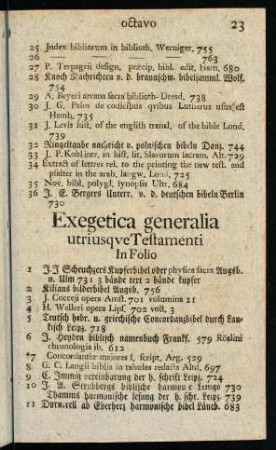 octavo 23
25 Index bibliorum in biblioth. Werniger, 755
26 — — — 763
27 P. Terpagrii design, præcip, bibl. edit, Hafn, 680
28 Knoch Nachrichten v. d. braunschw. bibelsamml. Wolf.
754
29 A. Beyeri arcana sacra biblioth- Dresd, 738
30 J. G. Palm de codicibus qvibus Lutherus usus est
Hamb, 735
31 J. Levis hist, of the english transl, of the bible Lond,
739
32 Ringeltaube nachricht v. polnischen bibeln Danz. 744
33 J. P. Kohl intr, in hist, lit. slavorum increm. Alt. 729
34 Extract of lettres rel. to the printing the new test. and
psalter in the arab, langw, Lond. 725
35 Nov. bibl, polygl, synopsis Ultr, 684
36 J. E. Bergers Unterr. v. d. deutschen bibeln Berlin
730
Exegetica generalia
utriusqve Testamenti
In Folio
1 J.J Scheuchzers Kupferbibel oder physica sacra Augsb.
u. Ulm 731 3 bände text 2 bände kupfer
2 Kilians bilderbibel Augsb. 756
3 J. Cocceji opera Amst. 701 volumina 11
4 H. Welleri opera Lips, 702 voll, 3
5 Teutsch hebr. u. griechische Concordanzbibel durch Lan-
kisch Leipz. 718
6 J. Heyden biblisch namenbuch Frankf. 579 Röslini
chronologia ib, 612
7 Concordantiæ majores s, script, Arg. 529
8 G. C. Langii biblia in tabulas redacta Altd, 697
9 C. Immig vereinbarung der h. schrift Leipz. 724
10 J. A. Strubbergs biblische harmonie Lemgo 730
Thamms harmonische lesung der h. schr. Leipz. 739
11 Dorn.rell ab Eberherz harmonische bibel Lüneb. 683